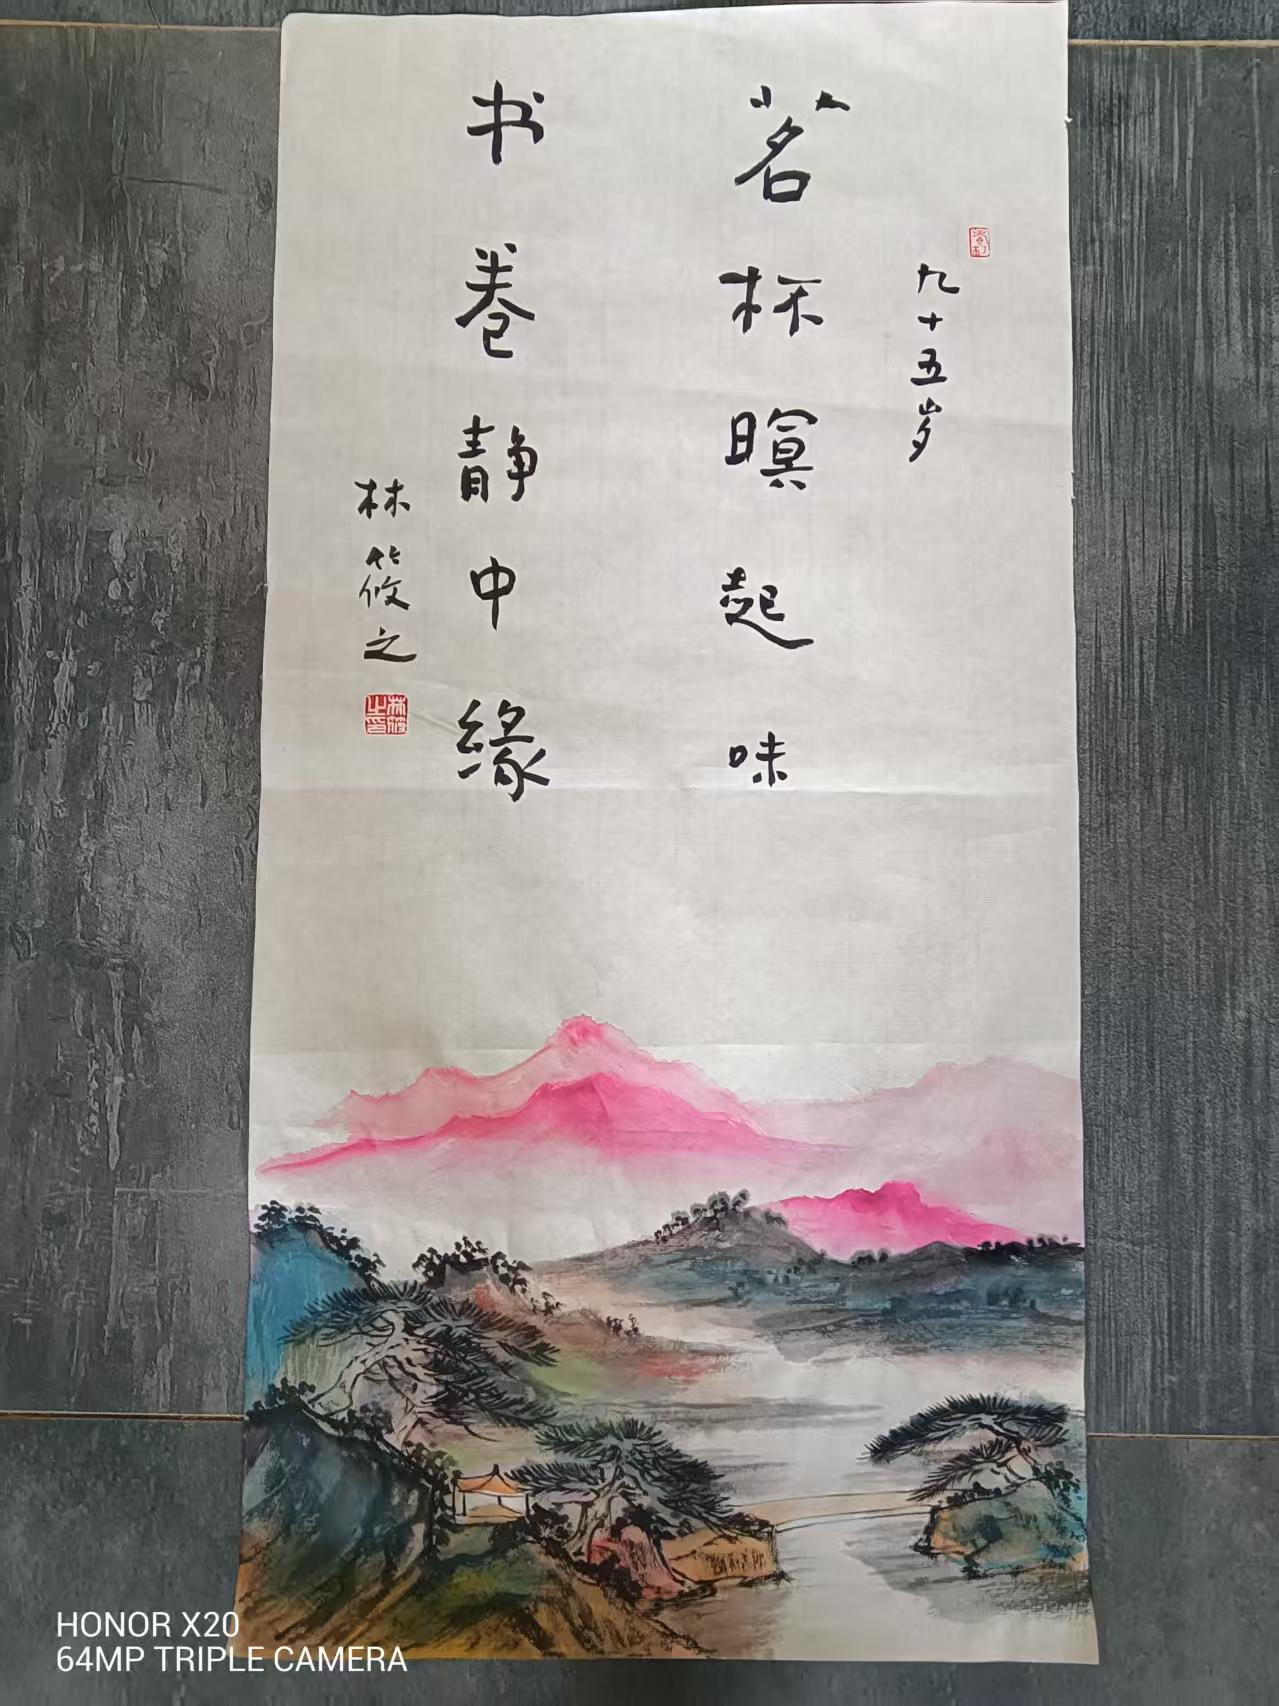 九十五岁
茗杯暝起味
书卷静中缘
林筱之
HONOR X20
64MP TRIPLE CAMERA